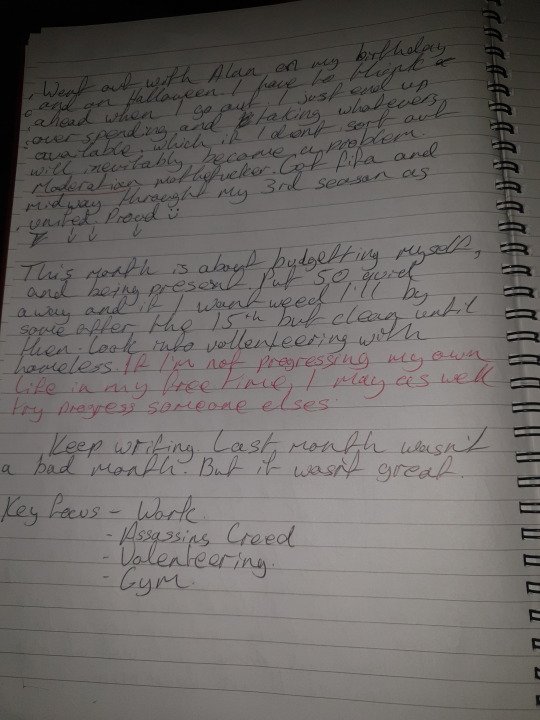 Went out with Alan on my birthday
and on Halloween I have to think
ahead when I go out. I just end up
over spending and taking whatevers
available. which if I dont sort out
will inevitably become a problem.
Moderation mothefucker. Got fifa and
midway throught my 3rd season as
united. Proud
This month is about budgetting myself,
and being present. Put 50 quid
away and if I want weed I'll by
some after the 15th but clean until
then. Look into vollenteering with
homeless. If I'm not progressing my own
life in my free time, I may as well
try progress someone elses.
Keep writing. Last month wasn't
a bad month. But it wasn't great.
Key focus - Work.
- Assassins Creed
- Volenteering.
- Gym.